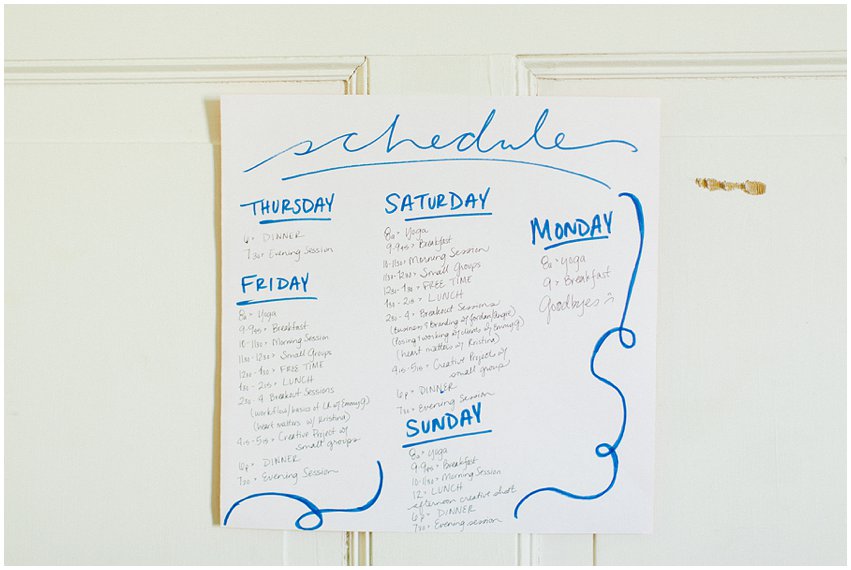 schedule
THURSDAY
6p DINNER
730p Evening Session
FRIDAY
8a Yoga
9-945a Breakfast
10-1130a Morning Session
1130-1230p Small Groups
1230-130p FREE TIME
130-215p LUNCH
230-4 Breakout Sessions
(workflow/basics of LR w/ Emmy g)
(heart matters w/ Kristina)
415-515p Creative Project w/
small groups
6p DINNER
730p Evening Session
SATURDAY
8a Yoga
9-945a Breakfast
10-1130a Morning Session
1130-1230p Small Groups
1230-130p FREE TIME
130-215p LUNCH
230-4p Breakout Sessions
(business & Branding w/ Jordan/Angie)
(Posing & working w/ clients w/ Emmy g)
(heart matters w/ Kristina)
415-515p Creative Project w/
small group
6p DINNER
730p Evening Session
SUNDAY
8a Yoga
9-945a Breakfast
10-1130a Morning Session
12p LUNCH
afternoon creative shoot
6p DINNER
730p Evening session
MONDAY
8a yoga
9a Breakfast
Goodbyes :(